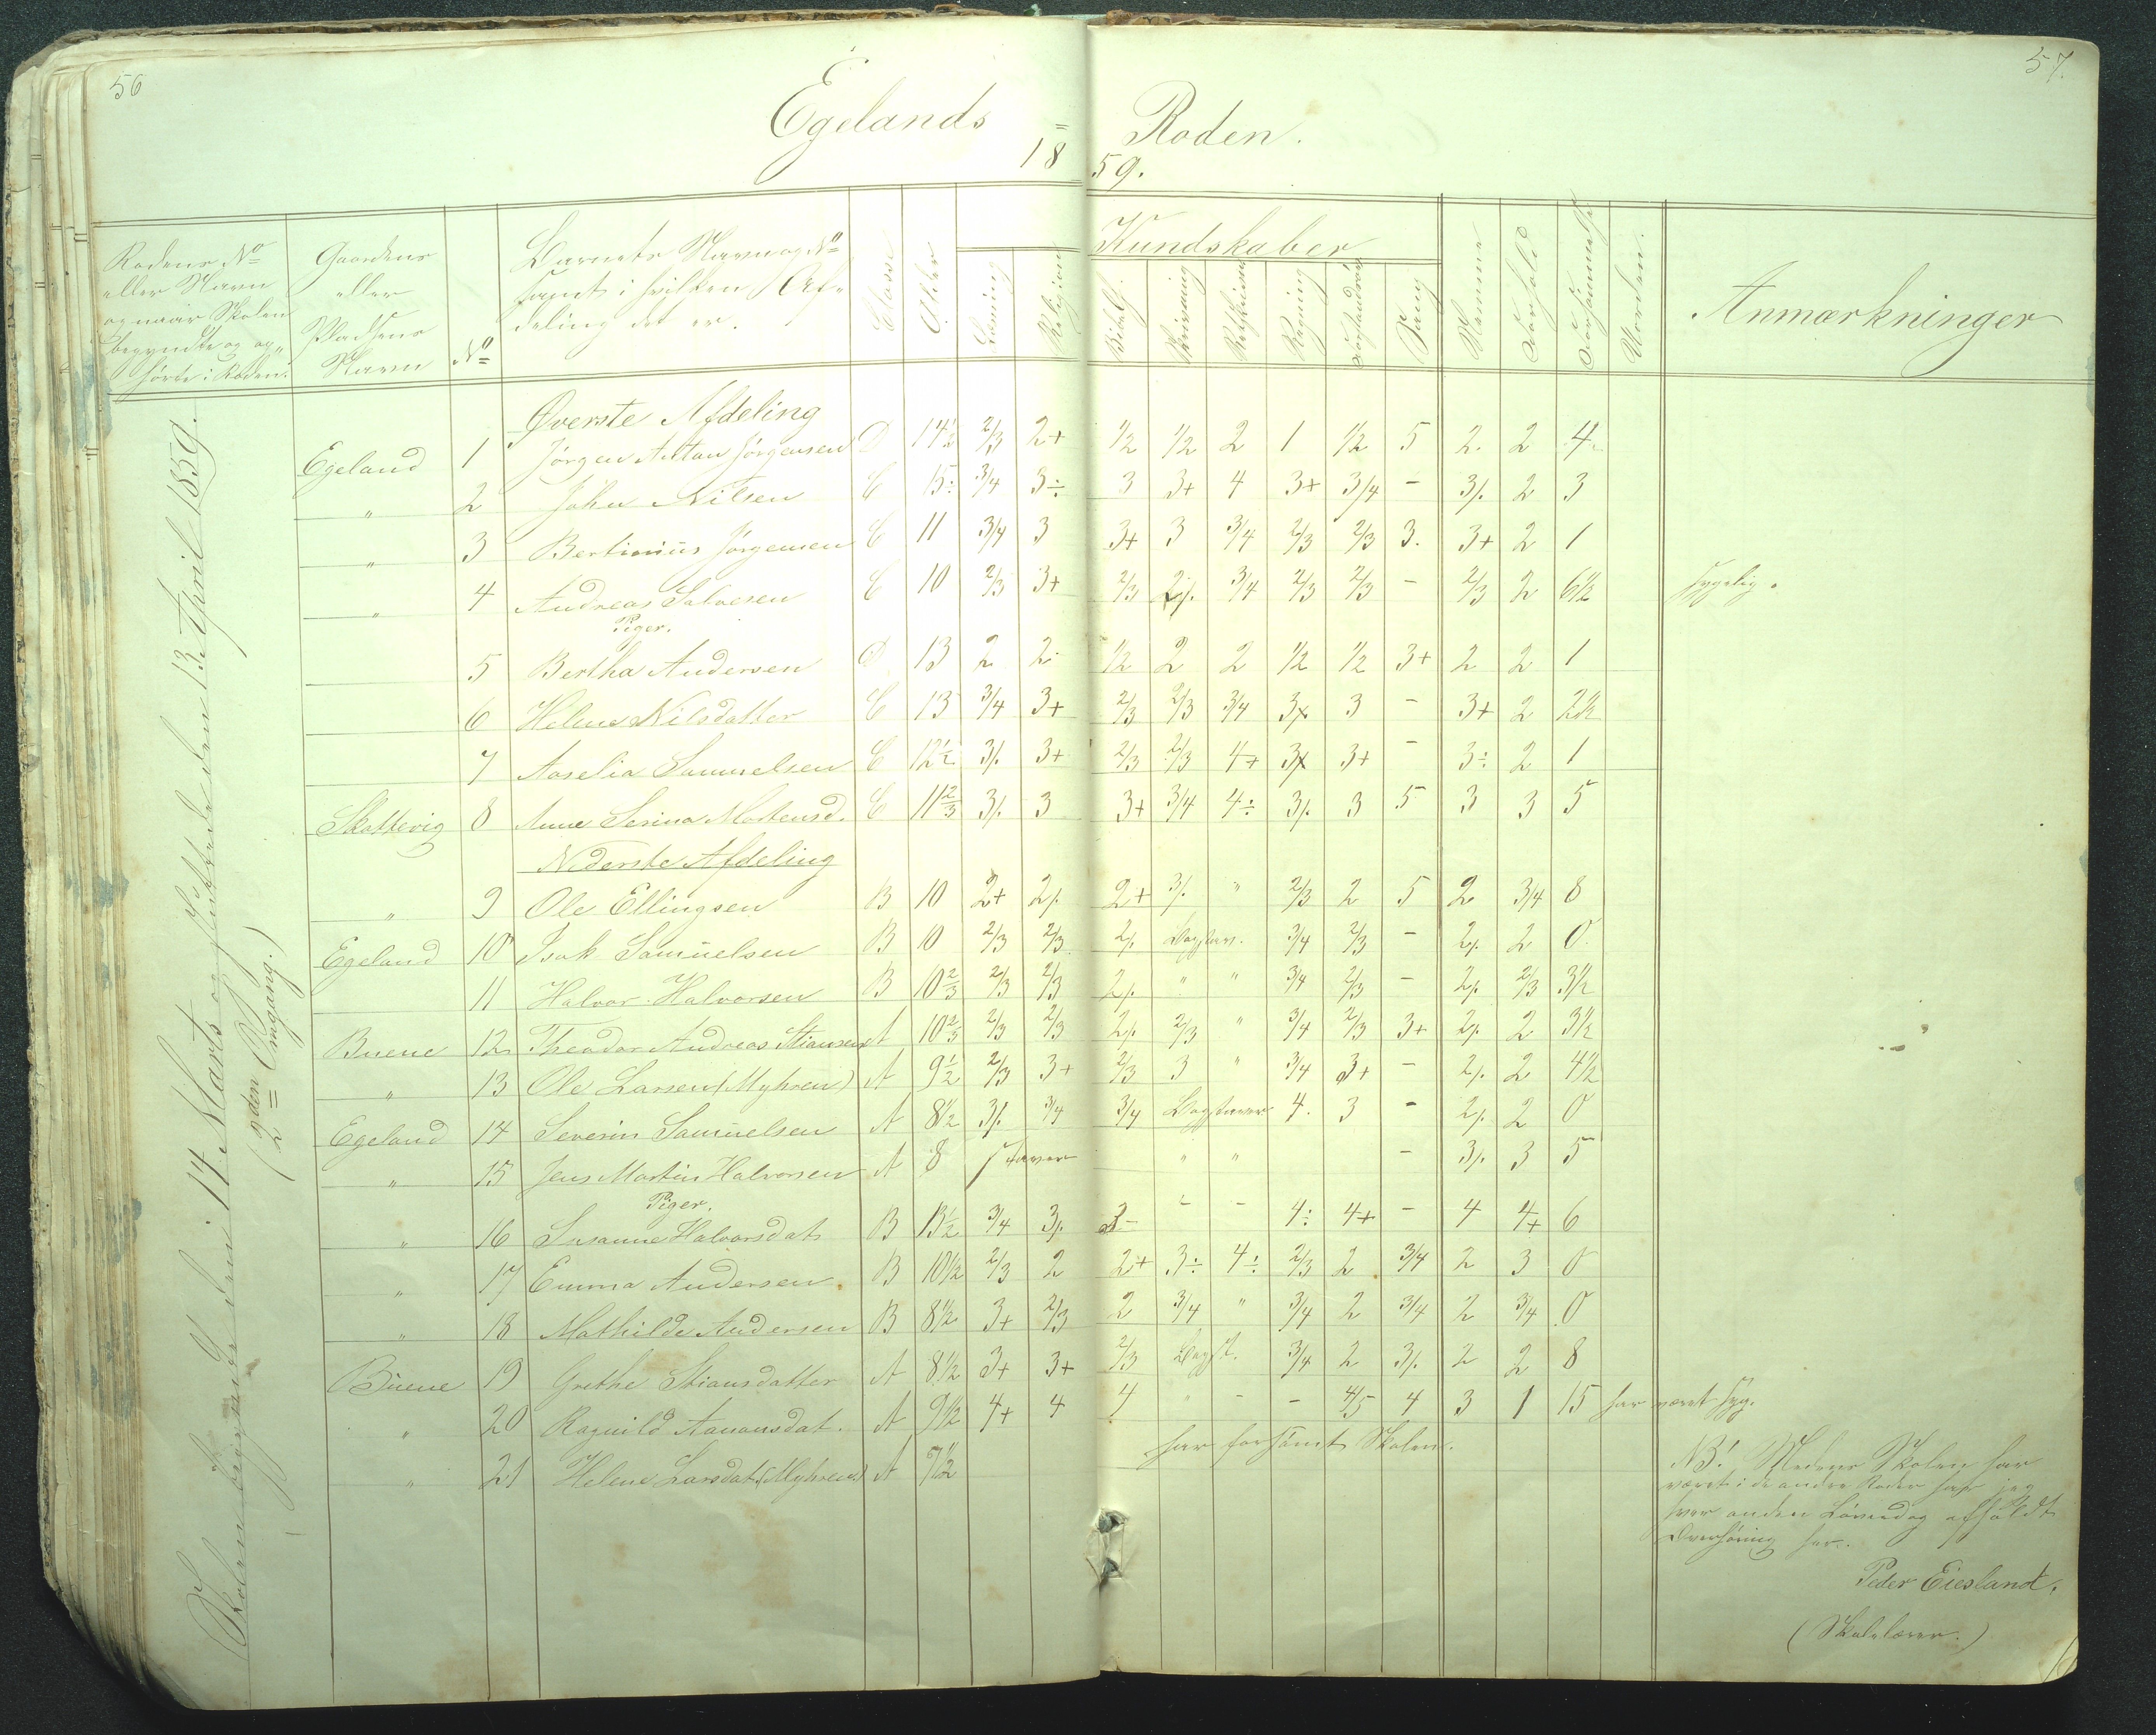 56
57.
Egelands Roden.
1859.
Rodens No eller Navn og naar Skolen begyndte og ophørte i Roden.
Gaardens eller Pladsens Navn
No
Barnets Navn og No samt i hvilken Afdeling det er.
Classe
Alder
Kundskaber
Læsning
Religion
Bibelh.
Skrivning
Retskrivn
Regning
Forstandsøv
Sang
Nemme
Forhold
Forsømmelse
Anmærkninger
Skolen begyndte den 14 Marts og sluttede den 13 April 1859.
(2den Omgang.)
Øverste Afdeling
Egeland 1 Jørgen Anton Jørgensen D 14½ 2/3 2+ 1/2 1/2 2 1 1/2 5 2. 2 4
" 2 John Nilsen C 15÷ 3/4 3÷ 3 3+ 4 3+ 3/4 - 3/. 2 3
" 3 Bertinius Jørgensen C 11 3/4 3 3+ 3 3/4 2/3 2/3 3. 3+ 2 1
" 4 Andreas Salvesen C 10 2/3 3+ 2/3 2/. 3/4 2/3 2/3 - 2/3 2 6½ sygelig.
Piger.
5 Bertha Andersen D 13 2 2 1/2 2 2 1/2 1/2 3+ 2 2 1
6 Helene Nilsdatter C 13 3/4 3+ 2/3 2/3 3/4 3+ 3 - 3+ 2 2½
7 Aaselia Samuelsen C 12½ 3/. 3+ 2/3 2/3 4+ 3+ 3+ - 3÷ 2 1
Skottevig 8 Anne Serina Mortensd. C 11 2/3 3/. 3 3+ 3/4 4÷ 3/. 3 5 3 3 5
Nederste Afdeling
" 9 Ole Ellingsen B 10 2+ 2/. 2+ 3/. " 2/3 2 5 2 3/4 8
Egeland 10 Isak Samuelsen B 10 2/3 2/3 2/. Bogstav. 3/4 2/3 - 2/. 2 0.
11 Halvor Halvorsen B 10 2/3 2/3 2/3 2/. " " 3/4 2/3 - 2/. 2/3 3½
Buene 12 Theodor Andreas Stiansen A 10 2/3 2/3 2/3 2/. 2/3 " 3/4 2/3 3+ 2/. 2 3½
" 13 Ole Larsen (Myhren) A 9½ 2/3 3+ 2/3 3 " 3/4 3+ - 2/. 2 4½
Egeland 14 Severin Samuelsen A 8½ 3/. 3/4 3/4 Bogstaver 4. 3 - 2/. 2 0
" 15 Jens Martin Halvorsen A 8 staver " " - 3/. 3 5
Piger.
" 16 Susanne Halvorsdat B 13½ 3/4 3/. 3- - - 4÷ 4+ - 4 4+ 6
" 17 Emma Andersen B 10½ 2/3 2 2+ 3÷ 4÷ 2/3 2 3/4 2 3 0
" 18 Mathilde Andersen B 8½ 3+ 2/3 2 3/4 " 3/4 2 3/4 2 3/4 0
Buene 19 Grethe Stiansdatter A 8½ 3+ 3+ 2/3 Bogst. 3/4 2 3/. 2 2 8
" 20 Ragnild Aanonsdat. A 9½ 4+ 4 4 " - - 4/5 4 3 1 15 har været syg.
" 21 Helene Larsdat. (Myhren) A 7½ har forsømt Skolen.
NB! Medens Skolen har
været i de andre Roder har jeg
hver anden Løverdag afholdt
Overhøring her.
Peder Eiesland.
(Skolelærer.)